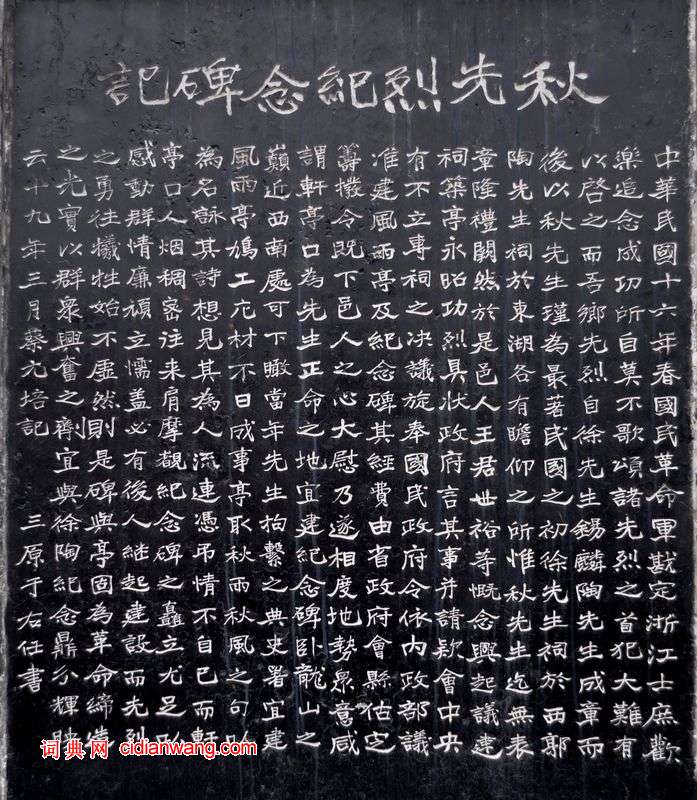 秋先烈紀念碑記
中華民國十六年春國民革命軍戡定浙江士庶歡
樂造念成功所自莫不歌頌諸先烈之首犯大難有
以啓之而吾鄉先烈自徐先生錫麟陶先生成章而
後以秋先生瑾為最著民國之初徐先生祠於西郭
陶先生祠於東湖各有瞻仰之所惟秋先生迄無表
章隆禮闕然於是邑人王君世裕等慨念興起議建
祠築亭永昭功烈具狀政府言其事并請欵會中央
有不立專祠之決議旋奉國民政府令依內政部議
准建風雨亭及紀念碑其經費由省政府會縣估定
籌撥令既下邑人之心大慰乃遂相度地勢眾意咸
謂軒亭口為先生正命之地宜建紀念碑卧龍山之
巔近西南處可下瞰當年先生拘繫之典史署宜建
風雨亭鳩工庀材不日成事亭取秋雨秋風之句以
為名詠其詩想見其為人流連憑弔情不自已而軒
亭口人烟稠密往來肩摩觀紀念碑之矗立尤足以
感動群情廉頑立懦盖必有後人继起建設而先烈
之勇往犧牲始不虛然則是碑與亭固為革命締造
之光實以群衆興奮之劑宜與徐陶紀念鼎分輝映
云十九年三月蔡元培記 三原于右任書
词典网 cidianwang.com
词典网 cidianwang.com